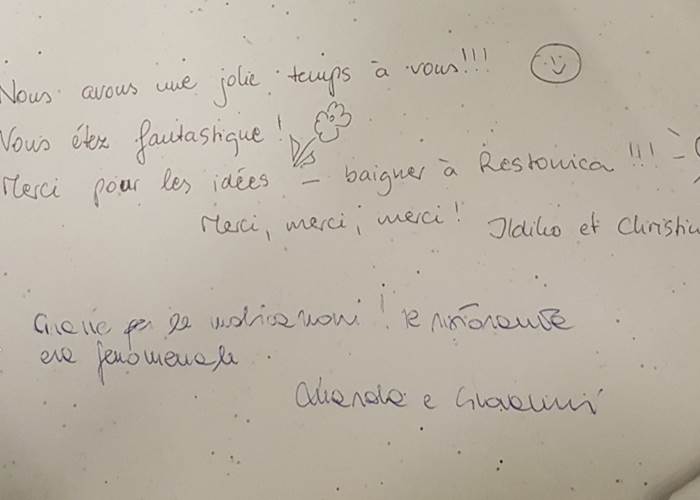 Nous avons une jolie temps à vous!!!
Vous étez fantastique!
Merci pour les idées – baigner à Restonica!!!
Merci, merci, merci! Ildiko et Christin
Grazie per le indicazioni! Il ristorante
era fenomenale
e Giovanni